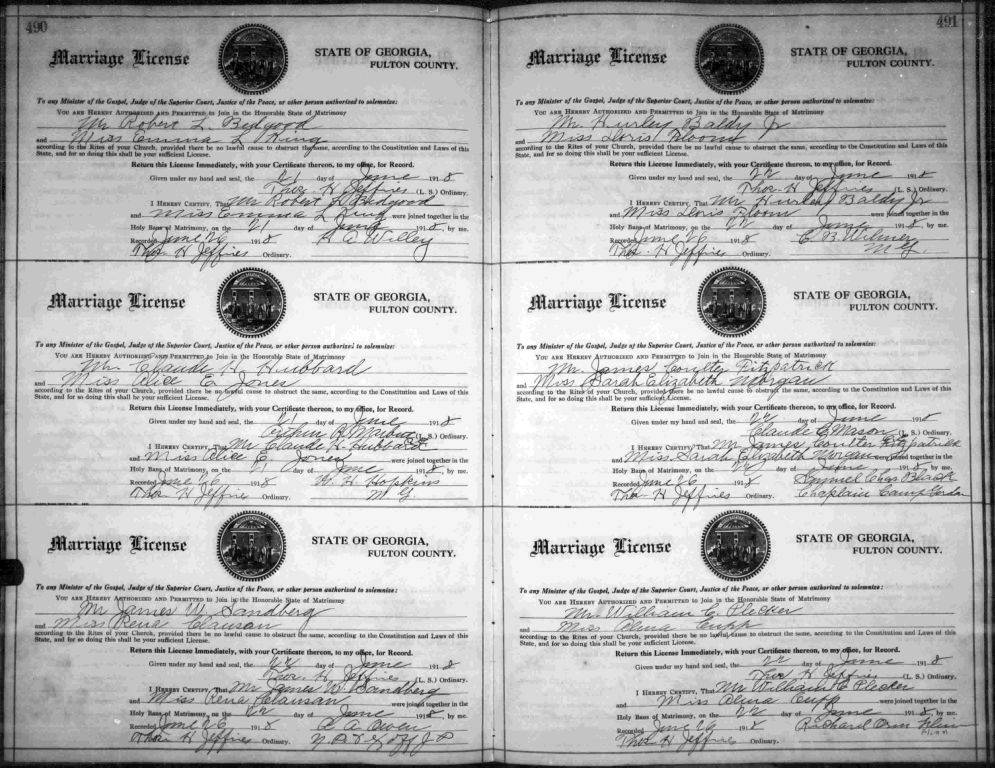 490
Marriage License
STATE OF GEORGIA,
FULTON COUNTY.
To any Minister of the Gospel, Judge of the Superior Court, Justice of the Peace, or other person authorized to solemnize:
YOU ARE HEREBY AUTHORIZED AND PERMITTED to Join in the Honorable State of Matrimony
Mr Robert L. Bedgood
and Miss Emma L King
according to the Rites of your Church, provided there be no lawful cause to obstruct the same, according to the Constitution and Laws of this
State, and for so doing this shall be your sufficient License.
Return this License Immediately, with your Certificate thereon, to my office, for Record.
Given under my hand and seal, the 21 day of June 1918
Thos. H Jeffries (L. S.) Ordinary.
I HEREBY CERTIFY, That Mr Robert L Bedgood
and Miss Emma L King were joined together in the
Holy Bans of Matrimony, on the 21 day of June 1918, by me.
Recorded June 26 1918 H A Willey
Thos H Jeffries Ordinary.
Marriage License
STATE OF GEORGIA,
FULTON COUNTY.
To any Minister of the Gospel, Judge of the Superior Court, Justice of the Peace, or other person authorized to solemnize:
YOU ARE HEREBY AUTHORIZED AND PERMITTED to Join in the Honorable State of Matrimony
Mr. Claude H Hubbard
and Miss Alice E Jones
according to the Rites of your Church, provided there be no lawful cause to obstruct the same, according to the Constitution and Laws of this
State, and for so doing this shall be your sufficient License.
Return this License Immediately, with your Certificate thereon, to my office, for Record.
Given under my hand and seal, the 21 day of June 1918
Arthur R (L. S.) Ordinary.
I HEREBY CERTIFY, That Mr Claude H. Hubbard
and Miss Alice E. Jones were joined together in the
Holy Bans of Matrimony, on the 21 day of June 1918, by me.
Recorded June 26 1918 W. H Hopkins
Thos H Jeffries Ordinary. M G
Marriage License
STATE OF GEORGIA,
FULTON COUNTY.
To any Minister of the Gospel, Judge of the Superior Court, Justice of the Peace, or other person authorized to solemnize:
YOU ARE HEREBY AUTHORIZED AND PERMITTED to Join in the Honorable State of Matrimony
Mr James W Sandberg
and Miss Rena Clauson
according to the Rites of your Church, provided there be no lawful cause to obstruct the same, according to the Constitution and Laws of this
State, and for so doing this shall be your sufficient License.
Return this License Immediately, with your Certificate thereon, to my office, for Record.
Given under my hand and seal, the 22 day of June 1918
Thos. H Jeffries (L. S.) Ordinary.
I HEREBY CERTIFY, That Mr James W Sandberg
and Miss Rena Clauson were joined together in the
Holy Bans of Matrimony, on the 22 day of June 191 , by me.
Recorded June 26 1918 A Owen
Thos H Jeffries Ordinary.
491
Marriage License
STATE OF GEORGIA,
FULTON COUNTY.
To any Minister of the Gospel, Judge of the Superior Court, Justice of the Peace, or other person authorized to solemnize:
YOU ARE HEREBY AUTHORIZED AND PERMITTED to Join in the Honorable State of Matrimony
Mr. Hurley Baldy Jr
and Miss Doris Bloom
according to the Rites of your Church, provided there be no lawful cause to obstruct the same, according to the Constitution and Laws of this
State, and for so doing this shall be your sufficient License.
Return this License Immediately, with your Certificate thereon, to my office, for Record.
Given under my hand and seal, the 22 day of June 1918
Thos. H Jeffries (L. S.) Ordinary.
I HEREBY CERTIFY, That Mr. Hurley Baldy Jr
and Miss Doris Bloom were joined together in the
Holy Bans of Matrimony, on the 22 day of June 1918, by me.
Recorded June 26 1918 C B Wilmer
Thos. H Jeffries Ordinary. M G.
Marriage License
STATE OF GEORGIA,
FULTON COUNTY.
To any Minister of the Gospel, Judge of the Superior Court, Justice of the Peace, or other person authorized to solemnize:
YOU ARE HEREBY AUTHORIZED AND PERMITTED to Join in the Honorable State of Matrimony
Mr. James Coulter Fitzpatrick
and Miss Sarah Elizabeth Morgan
according to the Rites of your Church, provided there be no lawful cause to obstruct the same, according to the Constitution and Laws of this
State, and for so doing this shall be your sufficient License.
Return this License Immediately, with your Certificate thereon, to my office, for Record.
Given under my hand and seal, the 22 day of June 1918
Claude C Mason (L. S.) Ordinary.
I HEREBY CERTIFY, That Mr. James Coulter Fitzpatrick
and Miss Sarah Elizabeth Morgan were joined together in the
Holy Bans of Matrimony, on the 22 day of June 1918, by me.
Recorded June 26 1918 Samuel Chas Black
Thos H Jeffries Ordinary. Chaplain Camp Gordon
Marriage License
STATE OF GEORGIA,
FULTON COUNTY.
To any Minister of the Gospel, Judge of the Superior Court, Justice of the Peace, or other person authorized to solemnize:
YOU ARE HEREBY AUTHORIZED AND PERMITTED to Join in the Honorable State of Matrimony
Mr. William C Plecker
and Miss Alma Cupp
according to the Rites of your Church, provided there be no lawful cause to obstruct the same, according to the Constitution and Laws of this
State, and for so doing this shall be your sufficient License.
Return this License Immediately, with your Certificate thereon, to my office, for Record.
Given under my hand and seal, the 22 day of June 1918
Thos H Jeffries (L. S.) Ordinary.
I HEREBY CERTIFY, That Mr William C Plecker
and Miss Alma Cupp were joined together in the
Holy Bans of Matrimony, on the 22 day of June 1918, by me.
Recorded June 26 1918 Richard Orm Flinn
Thos. H Jeffries Ordinary. Flinn